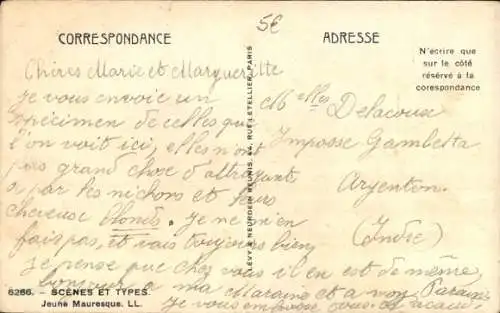 5€
CORRESPONDANCE
ADRESSE
N'écrire que
sur le côté
réservé à la
corespondance
Chères Marie et Margueritte
je vous envoie un
spécimen de celles que
l'on voit ici, elles n'ont
pas grand chose d'attrayant
à par les nichons et leurs
cheveux blonds. Je ne m'en
fais pas, et vais toujours bien
je pense que chez vous il en est de même,
bonjour à ma Marraine et à mon Parrain
je vous embrasse tous
Melles Delacoux
Impasse Gambetta
Argenton
(Indre)
LÉVY & NEURDEIN RÉUNIS, 44, RUE LETELLIER, PARIS
6266. - SCÈNES ET TYPES.
Jeune Mauresque. LL.